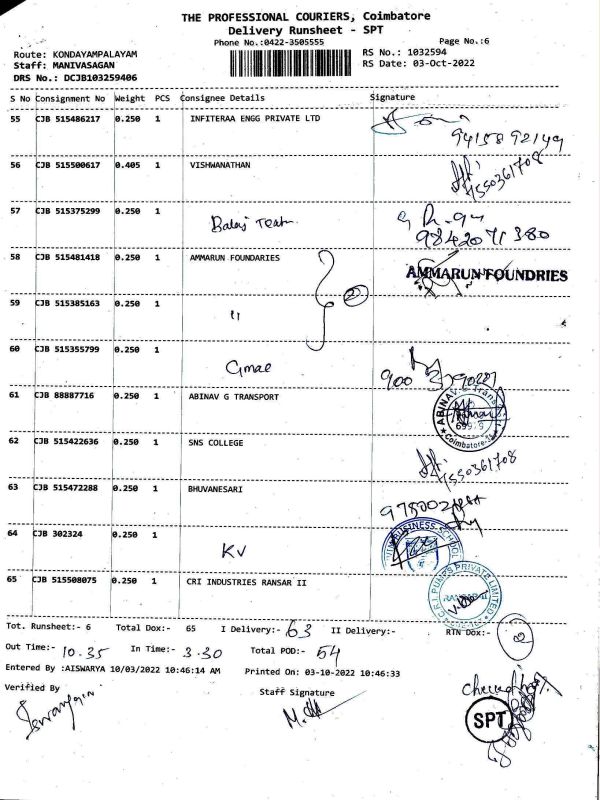 THE PROFESSIONAL COURIERS, Coimbatore
Delivery Runsheet - SPT
Phone No.:0422-3505555 Page No.:6
Route: KONDAYAMPALAYAM RS No.: 1032594
Staff: MANIVASAGAN RS Date: 03-Oct-2022
DRS No.: DCJB103259406
S No Consignment No Weight PCS Consignee Details Signature
55 CJB 515486217 0.250 1 INFITERAA ENGG PRIVATE LTD
9415892149
56 CJB 515500617 0.405 1 VISHWANATHAN
7550361708
57 CJB 515375299 0.250 1
9842071380
58 CJB 515481418 0.250 1 AMMARUN FOUNDARIES 2 AMMARUN FOUNDRIES
59 CJB 515385163 0.250 1 "
60 CJB 515355799 0.250 1
61 CJB 88887716 0.250 1 ABINAV G TRANSPORT
ABINAV G Transport
Coimbatore
62 CJB 515422636 0.250 1 SNS COLLEGE
7550361708
63 CJB 515472288 0.250 1 BHUVANESARI
64 CJB 302324 0.250 1 KV
BUSINESS SCHOOL
65 CJB 515508075 0.250 1 CRI INDUSTRIES RANSAR II
C.R.I. PUMPS PRIVATE LIMITED
Tot. Runsheet:- 6 Total Dox:- 65 I Delivery:- 63 II Delivery:- RTN Dox:- 2
Out Time:- 10.35 In Time:- 3.30 Total POD:- 54
Entered By :AISWARYA 10/03/2022 10:46:14 AM Printed On: 03-10-2022 10:46:33
Verified By Staff Signature
SPT